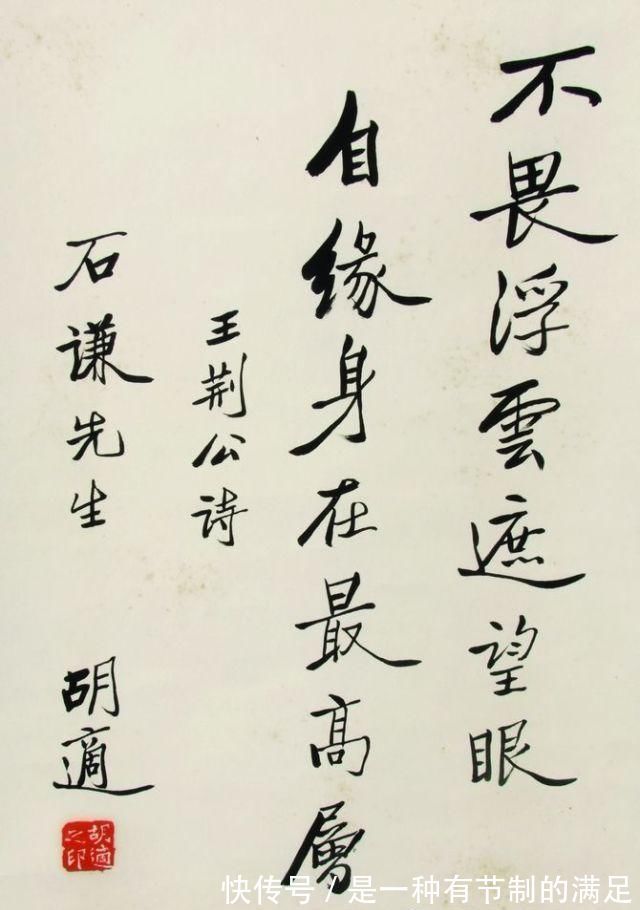 不畏浮雲遮望眼
自缘身在最高層
王荆公诗
石谦先生
胡適
胡適之印
快传号 / 是一种有节制的满足